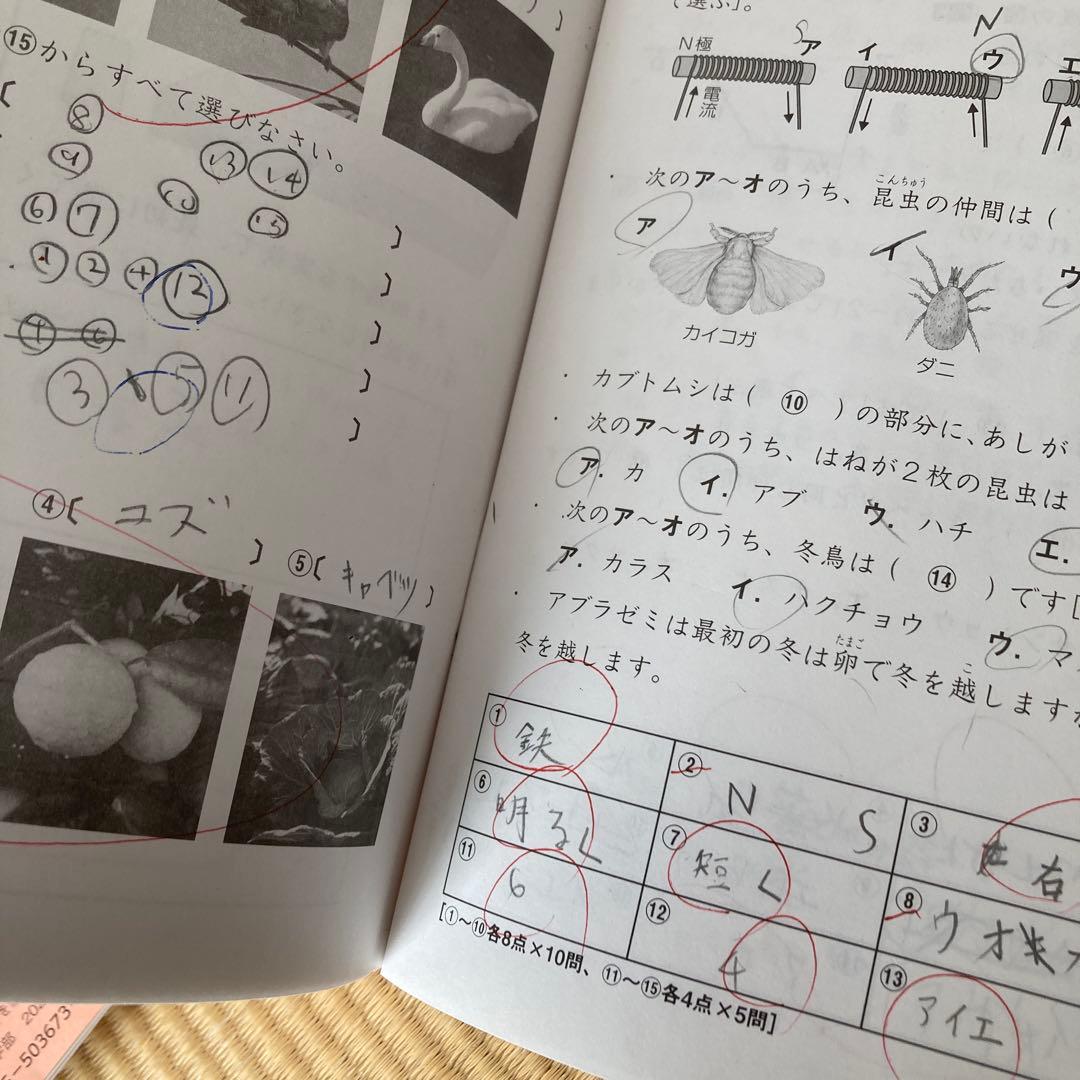 ⑮からすべて選びなさい。
⑧
⑨ ⑬ ⑭
⑥ ⑦ ⑩ ⑮
① ② ④ ⑫
③、⑤ ⑪
④〔 コズ 〕
⑤〔 キャベツ 〕
で選ぶ]。
N極 S ア イ N ウ エ
電流
・次のア～オのうち、昆虫の仲間は（
こんちゅう
ア イ ウ
カイコガ
ダニ
・カブトムシは（ ⑩ ）の部分に、あしが
・次のア～オのうち、はねが2枚の昆虫は
ア．カ イ．アブ ウ．ハチ エ．
・次のア～オのうち、冬鳥は（ ⑭ ）です[
ア．カラス イ．ハクチョウ ウ．マ
・アブラゼミは最初の冬は卵で冬を越しますが
たまご こ
冬を越します。
① 鉄 ② N S ③ 右
⑥ 明るく ⑦ 短く ⑧ ウオ
⑪ 6 ⑫ 4 ⑬ アイエ
[①～⑩各8点×10問、⑪～⑮各4点×5問]
部 20
-503673